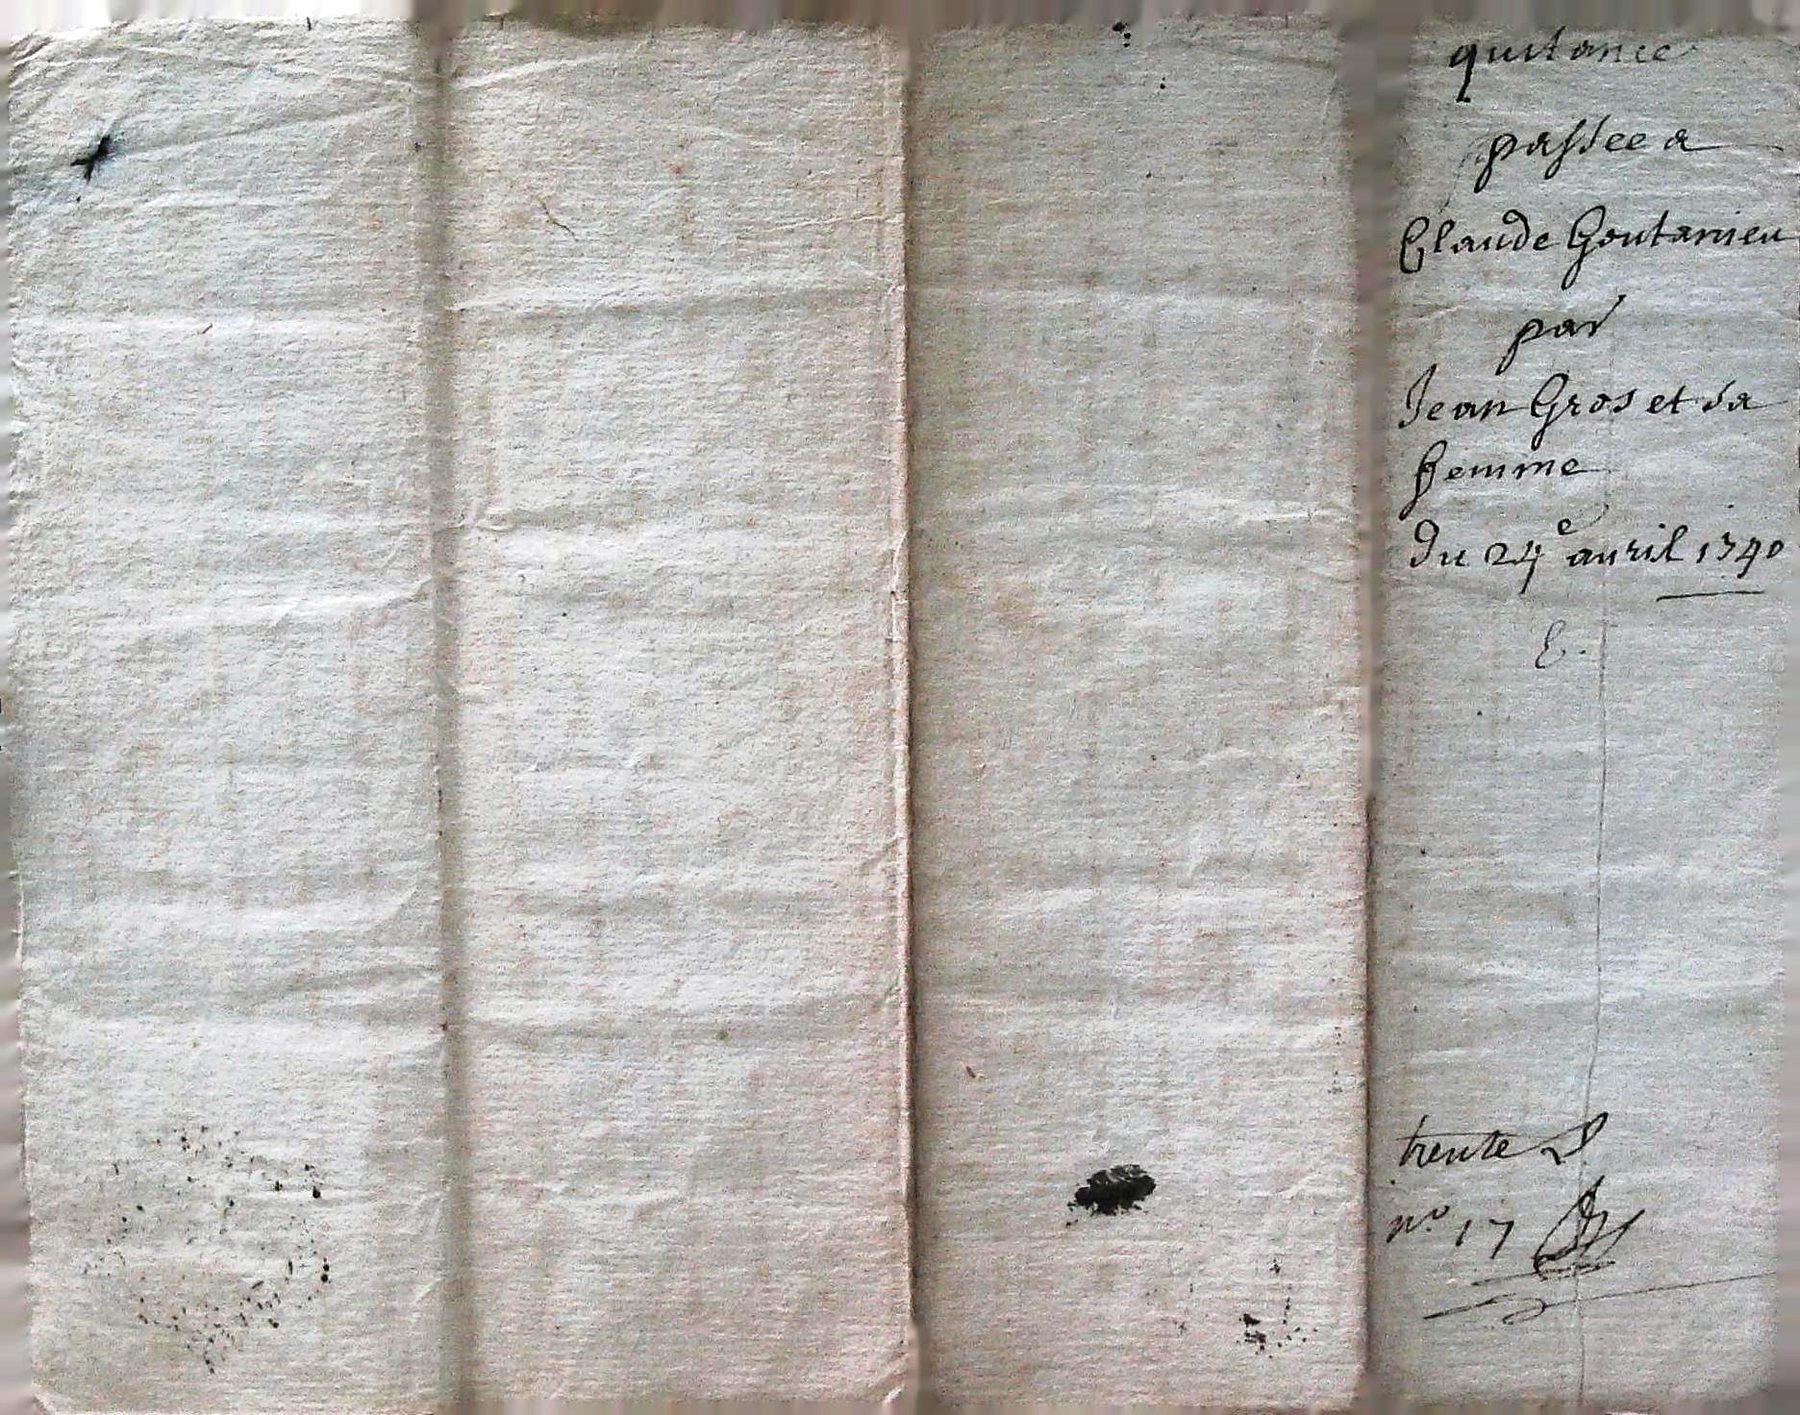 quitance
passee a
Claude Goutanieu
par
Jean Gros et sa
femme
du 24e auril 1740
E.
trente
no 17